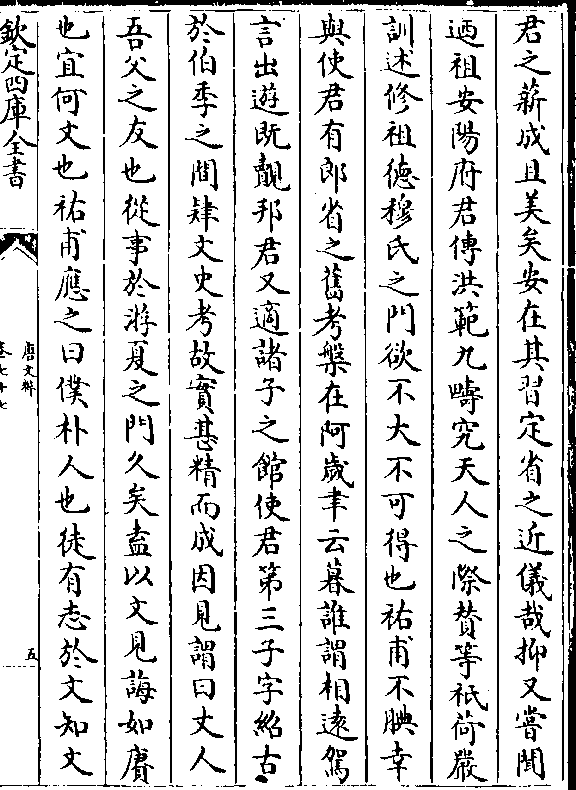 君之薪成且美矣安在其習定省之近儀哉抑又嘗聞
迺祖安陽府君傳洪範九疇究天人之際贊等祇荷嚴
訓述修祖德穆氏之門欲不大不可得也祐甫不腆幸
與使君有郎省之舊考槃在阿歲聿云暮誰謂相遠駕
言出遊既覿邦君又適諸子之館使君第三子字紹古
於伯季之間肄文史考故實甚精而成因見謂曰丈人
吾父之友也從事於游夏之門久矣盍以文見誨如賡
也宜何文也祐甫應之曰僕朴人也徒有志於文知文
欽定四庫全書
唐文粹
卷七十七
五